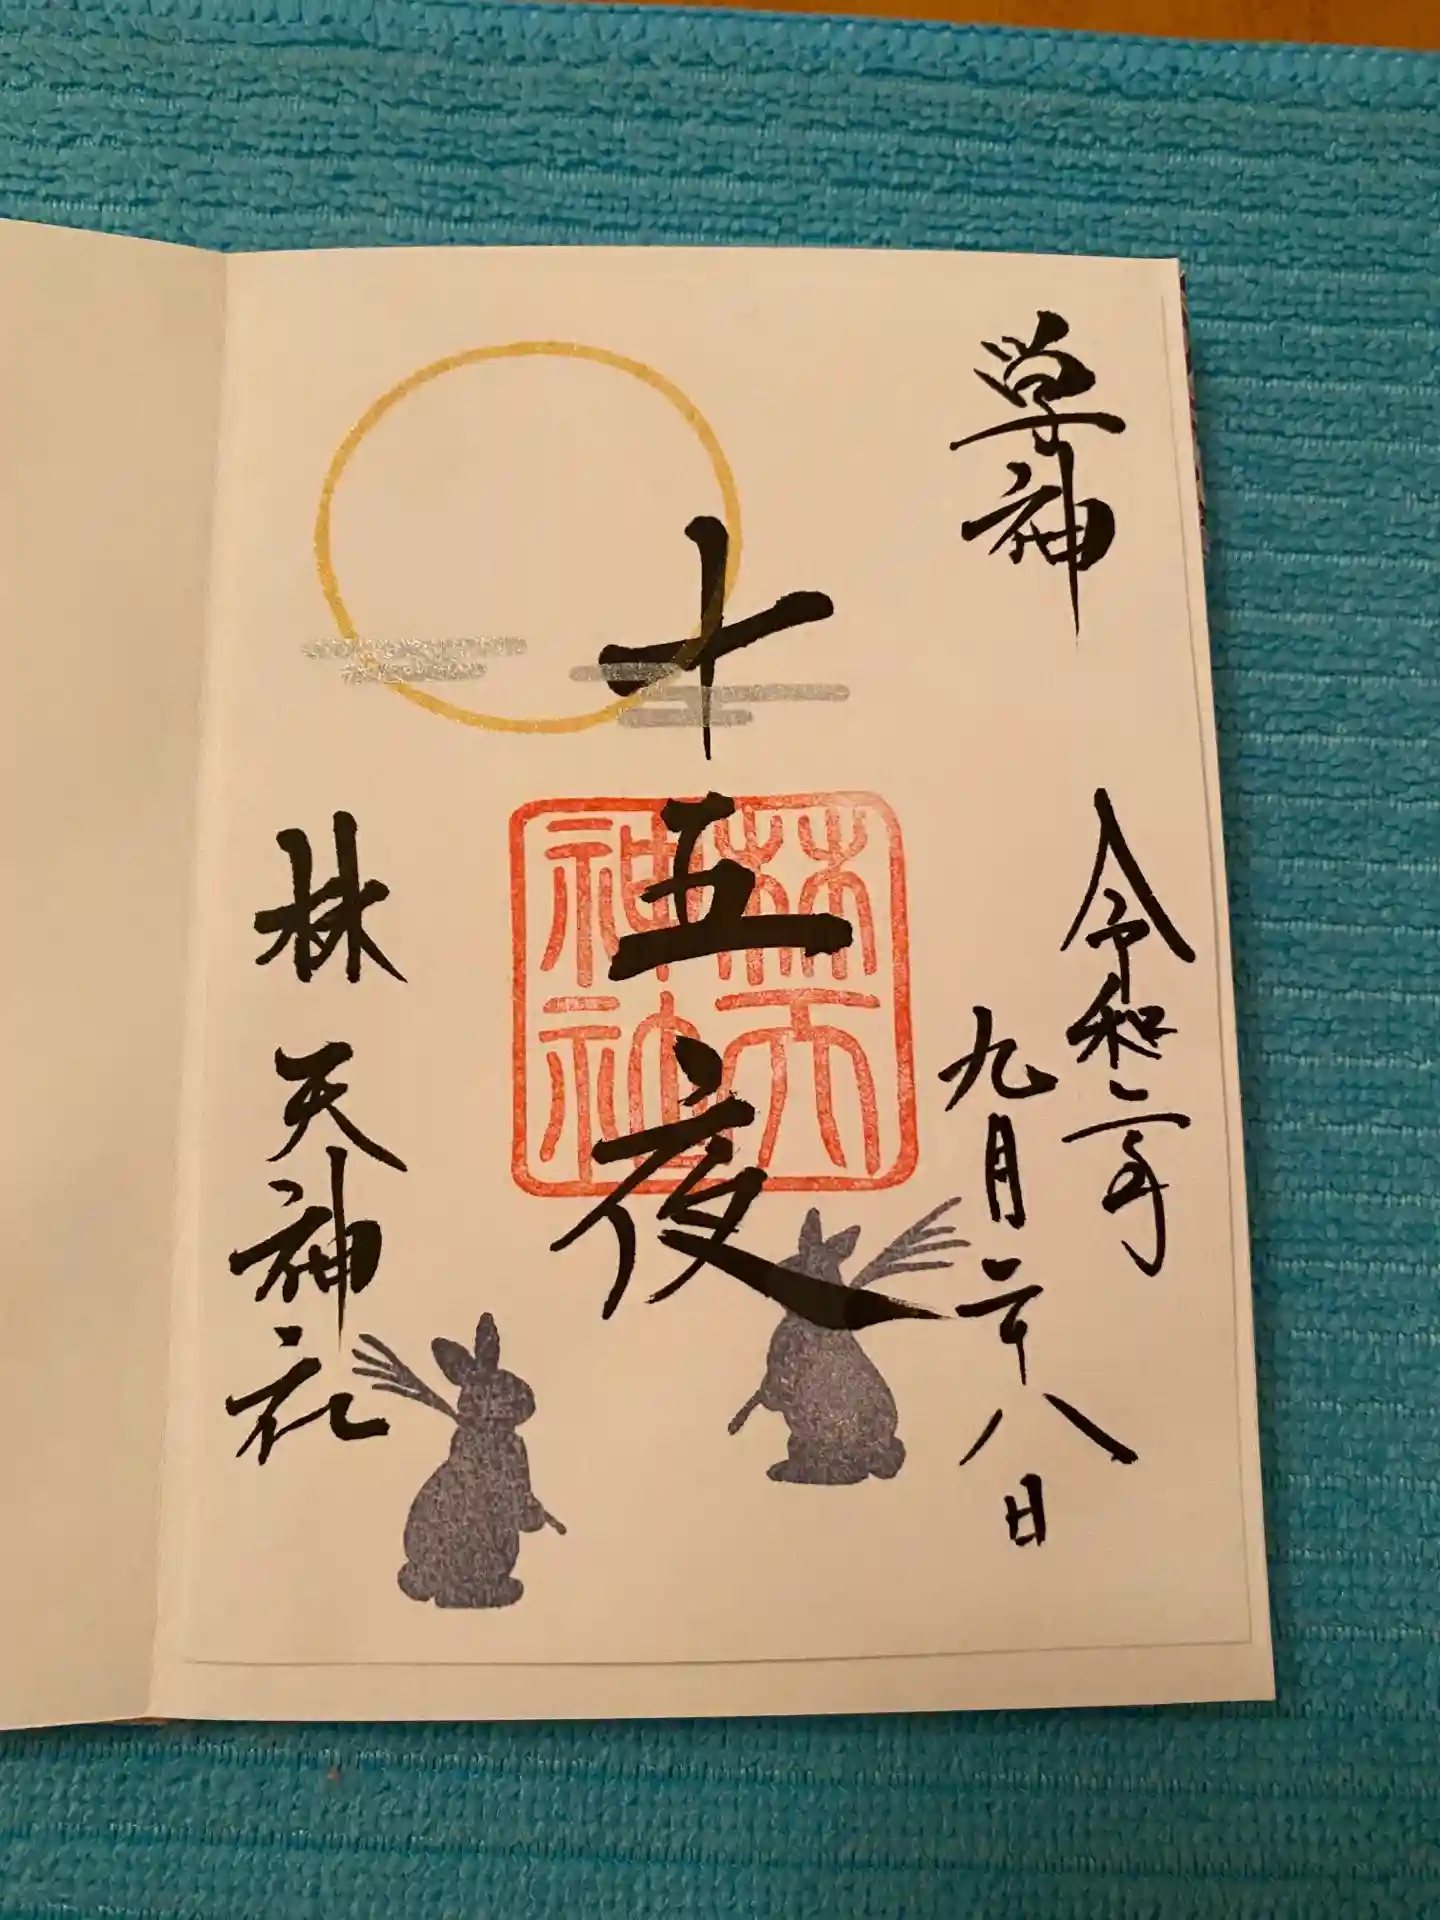 学神
令和二年
九月二十八日
十五夜
林天
神社
林天神社